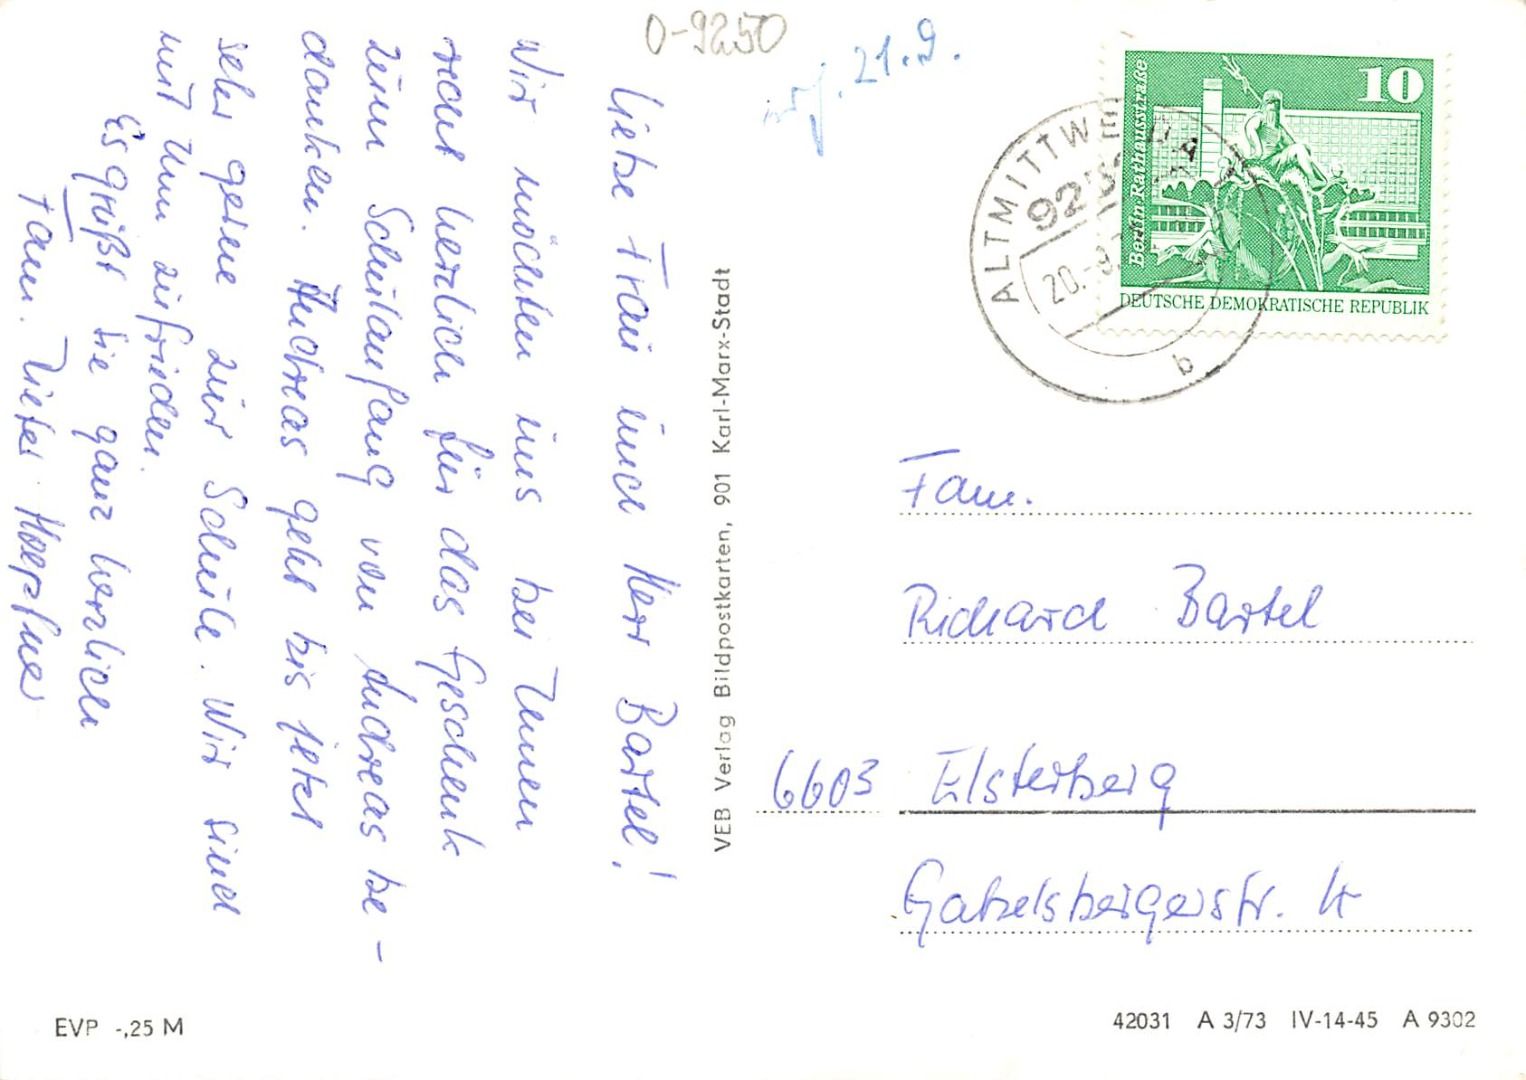 Liebe Frau und Herr Bartel!
Wir möchten uns bei Ihnen
recht herzlich für das Geschenk
zum Schulanfang von Andreas be-
danken. Andreas geht bis jetzt
sehr gerne zur Schule. Wir sind
mit ihm zufrieden.
Es grüßt Sie ganz herzlich
Fam. Dieter Hoepfner
VEB Verlag Bildpostkarten, 901 Karl-Marx-Stadt
0-9250
21.9.
10
Berlin Rathausstraße
DEUTSCHE DEMOKRATISCHE REPUBLIK
ALTMITTWEIDA
925
20.-9.
b
Fam.
Richard Bartel
6603 Elsterberg
Gabelsbergerstr. 4
EVP -,25 M
42031 A 3/73 IV-14-45 A 9302